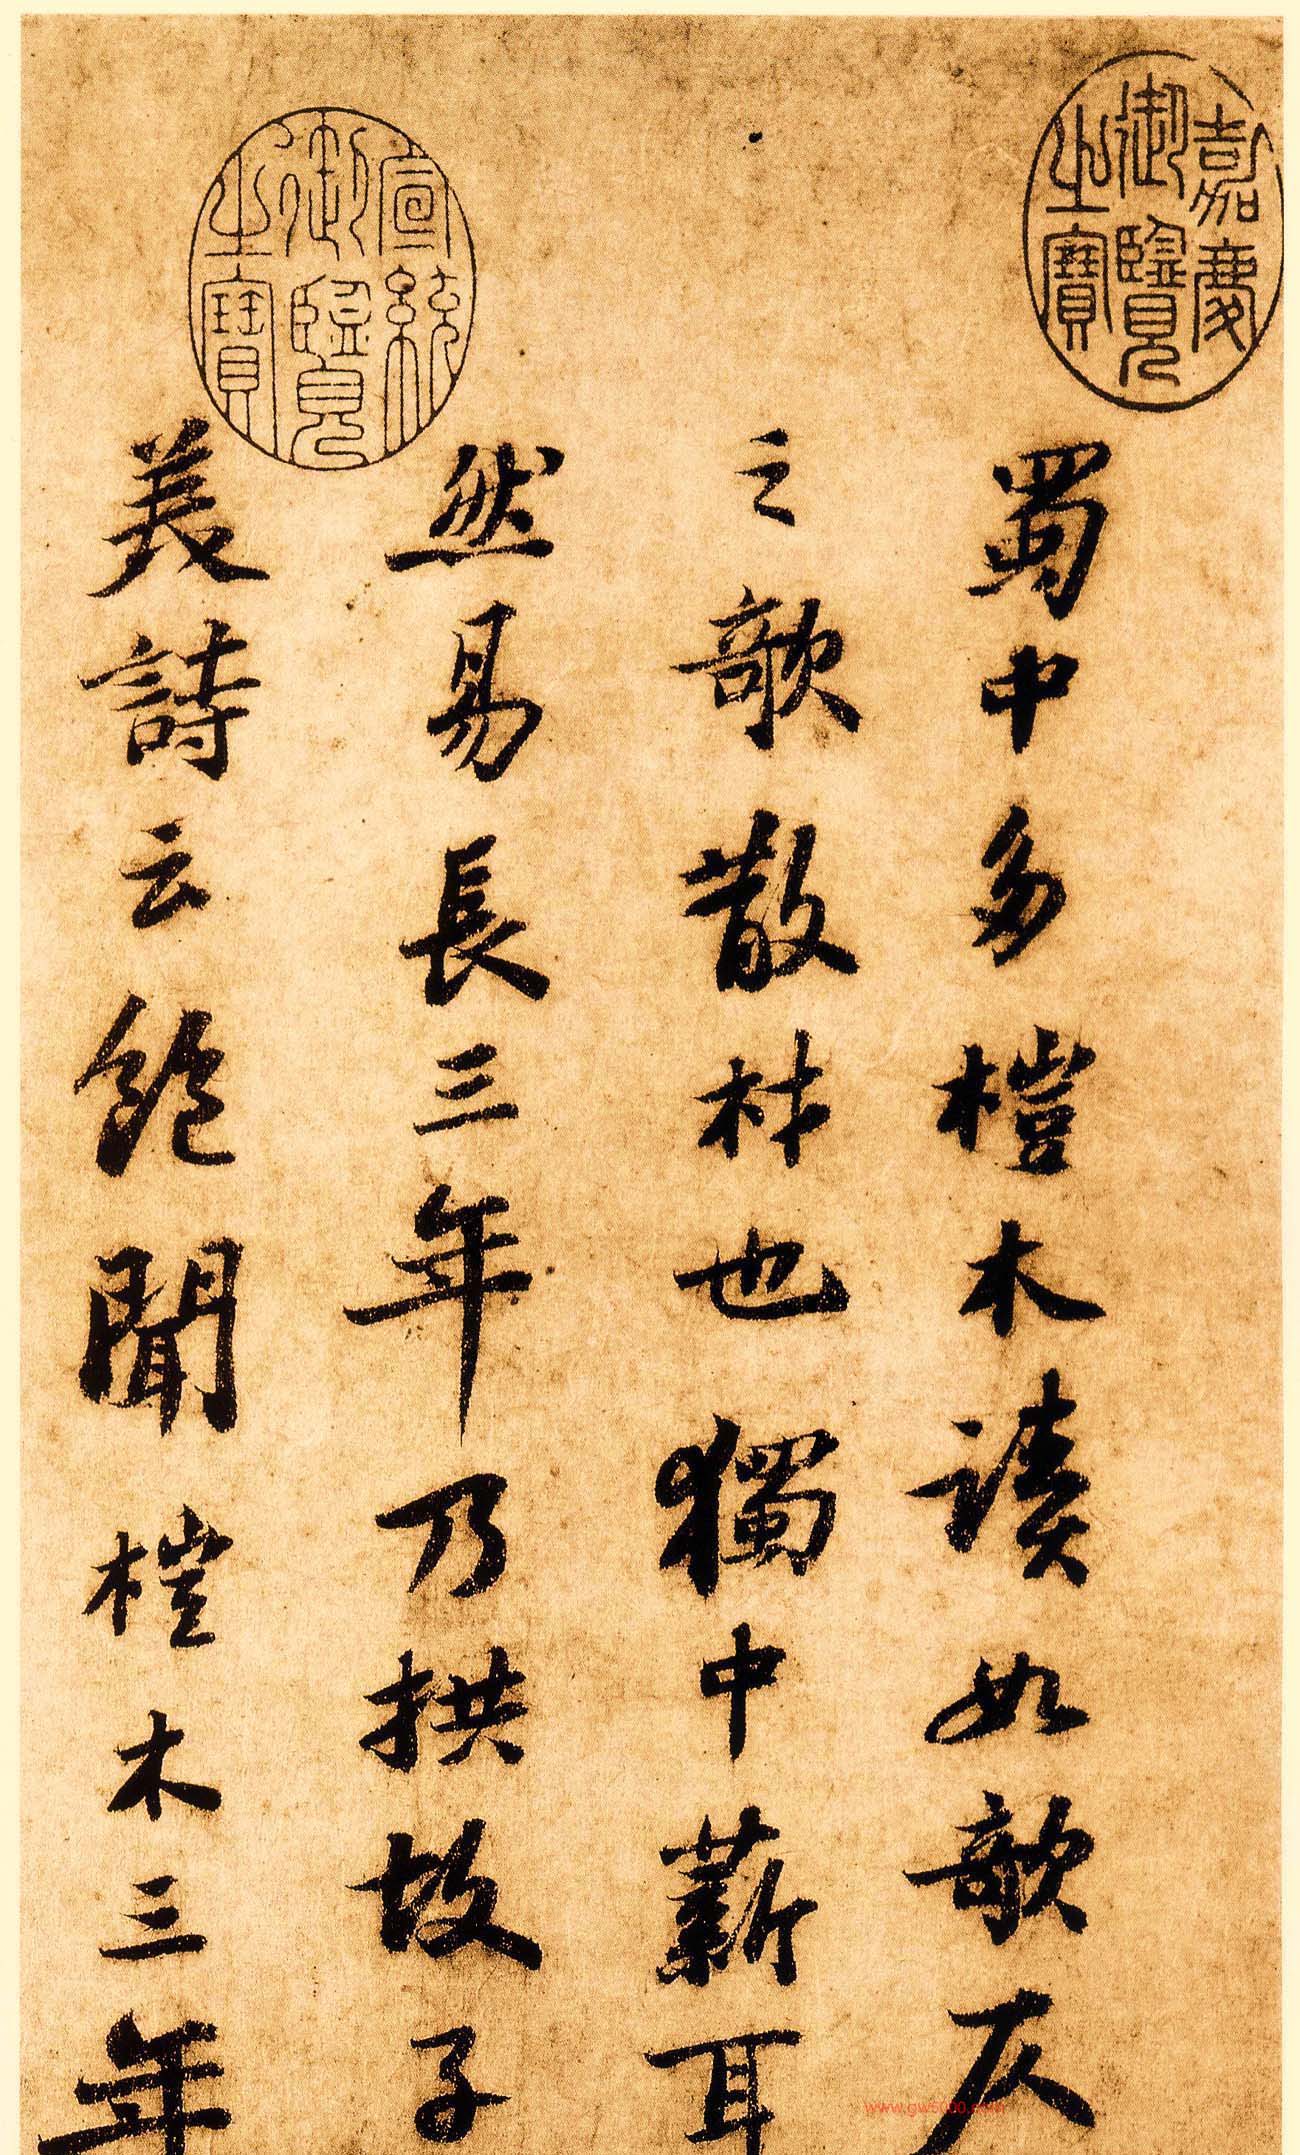 嘉慶御覽之寶
蜀中多榿木讀如欹仄
之欹散材也獨中薪耳
宣統御覽之寶
然易長三年乃拱故子
美詩云飽聞榿木三年